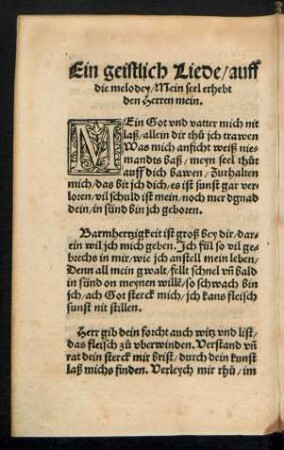 Ein geistlich Liede/auff
die melodey/Mein seel erhebt
den Herren mein.
MEin Got vnd vatter mich nit
laß/allein dir thů jch trawen
Was mich anficht weiß nie-
mandts baß/meyn seel thůt
auff dich bawen/Zurhalten
mich/das bit jch dich/es ist sunst gar ver-
loren/vil schuld ist mein/noch mer dgnad
dein/in sünd bin jch geboren.
Barmhertzigkeit ist groß bey dir/dar-
ein wil jch mich geben. Jch fül so vil ge-
brechs in mir/wie jch anstell mein leben/
Denn all mein gwalt/fellt schnel vñ bald
in sünd on meynen wille/so schwach bin
jch/ach Got sterck mich/jch kans fleisch
sunst nit stillen.
Herr gib dein forcht auch witz vnd list/
das fleisch zů vberwinden. Verstand vñ
rat dein sterck mir brist/durch dein kunst
laß michs finden. Verleych mir rhů/im